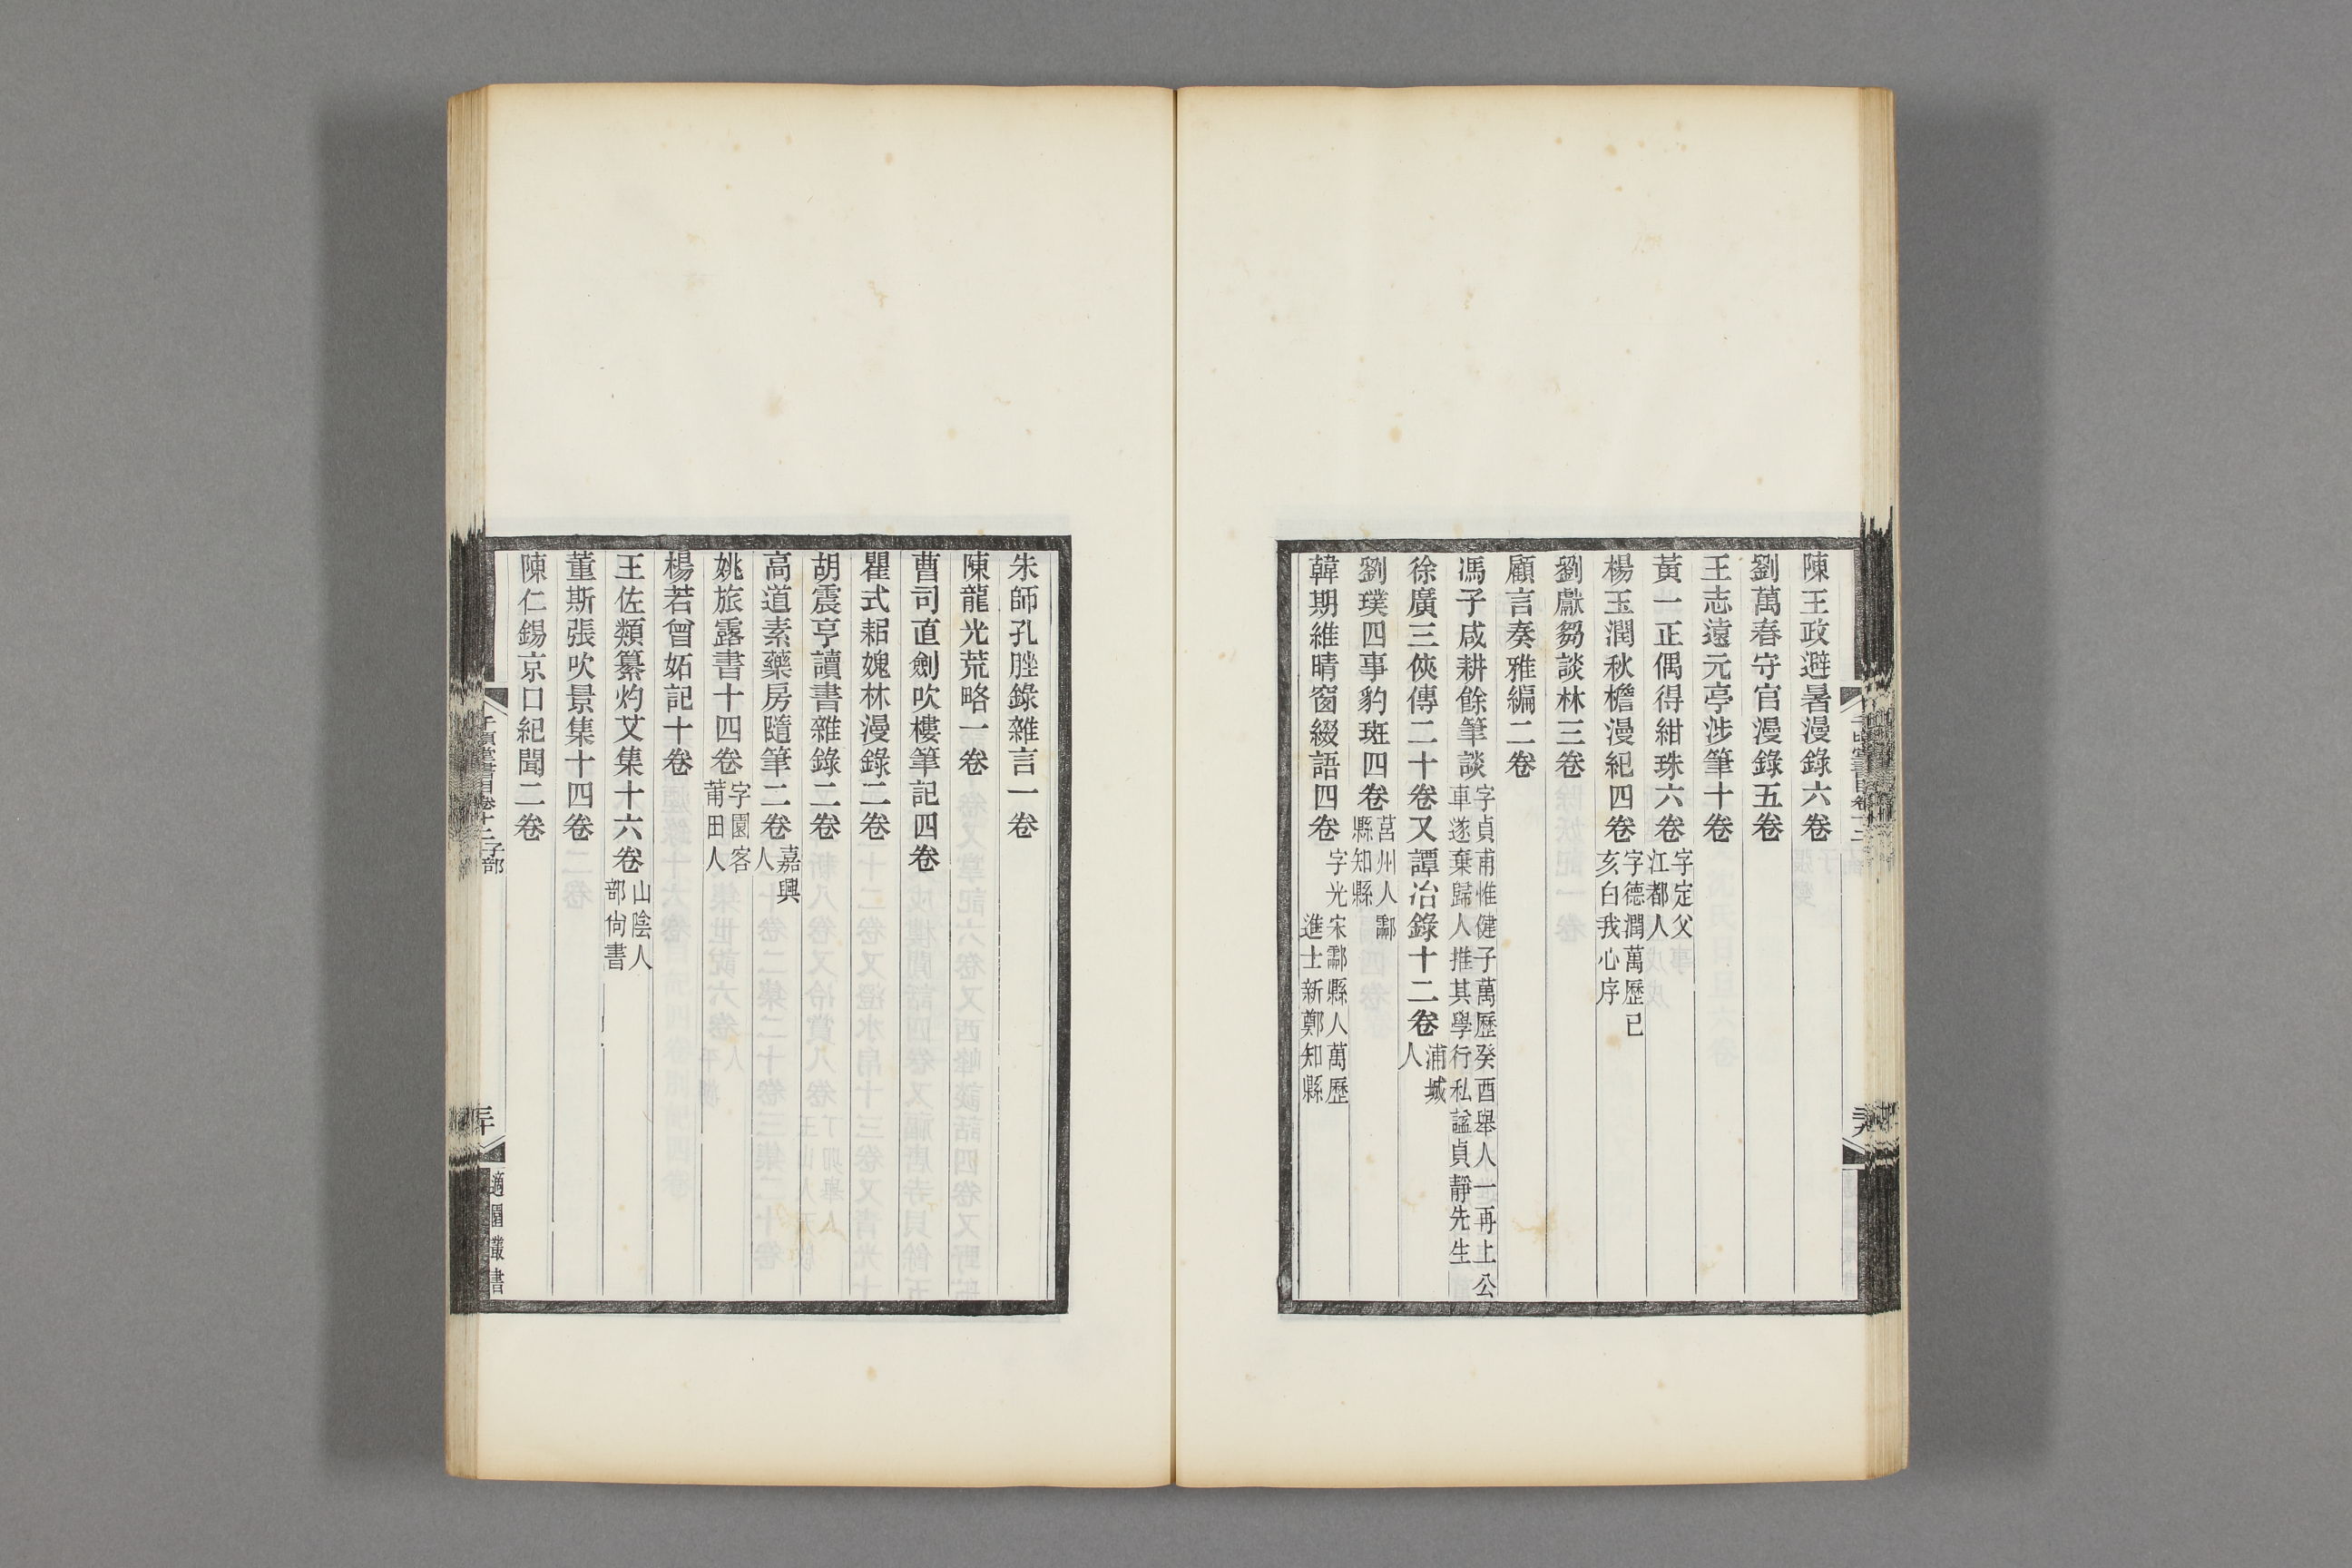 陳王政避暑漫錄六卷
劉萬春守官漫錄五卷
王志遠元亭涉筆十卷
黃一正偶得紺珠六卷字定父江都人
楊玉潤秋檐漫紀四卷字德潤萬歷已亥白我心序
劉獻芻談林三卷
顧言奏雅編二卷
馮子咸耕餘筆談字貞甫惟健子萬歷癸酉舉人一再上公車遂棄歸人推其學行私諡貞靜先生
徐廣三俠傳二十卷又譚冶錄十二卷浦城人
劉璞四事豹斑四卷莒州人酃縣知縣
韓期維晴窗綴語四卷字光宋酃縣人萬歷進士新鄭知縣
朱師孔脞錄雜言一卷
陳龍光荒略一卷
曹司直劍吹樓筆記四卷
瞿式耜媿林漫錄二卷
胡震亨讀書雜錄二卷
高道素藥房隨筆二卷嘉興人
姚旅露書十四卷字園客莆田人
楊若曾妬記十卷
王佐類纂灼艾集十六卷山陰人部尙書
董斯張吹景集十四卷
陳仁錫京口紀聞二卷
千頃堂書目卷十二子部
三十
適園叢書